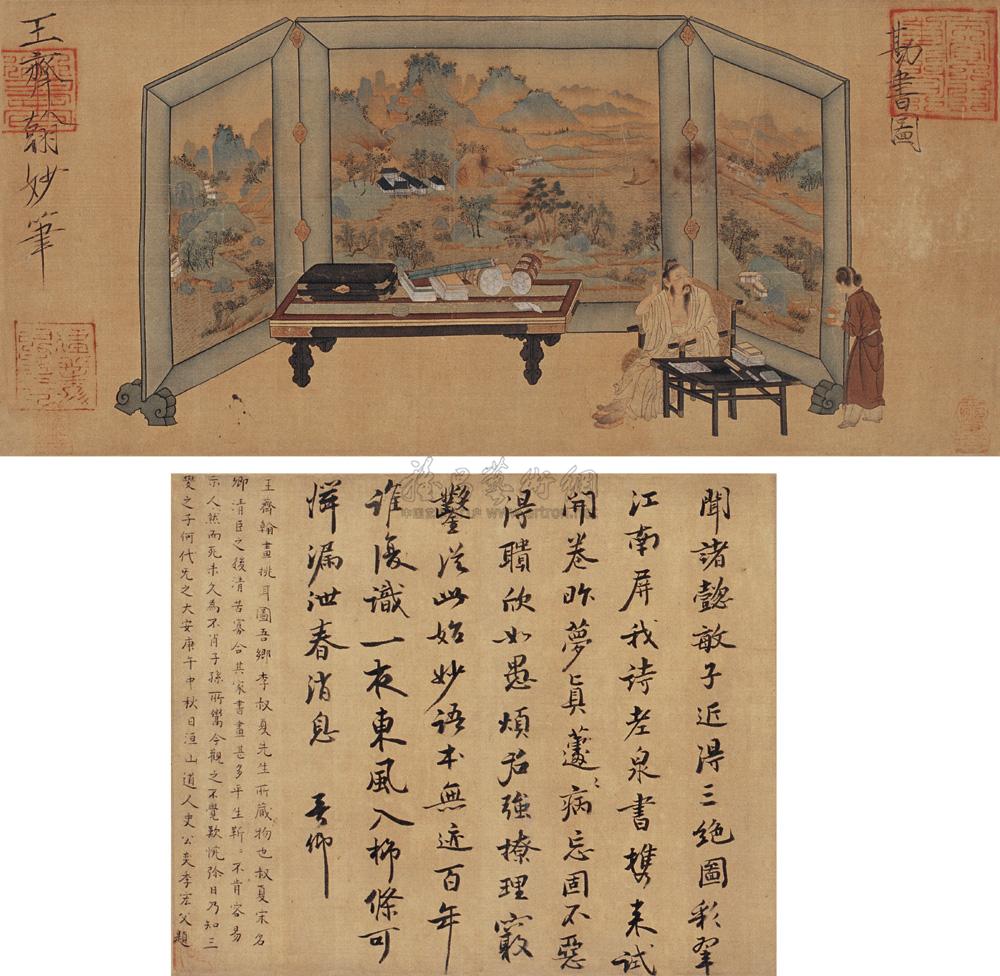 勘書圖
王齊翰妙筆
聞諸懿敏子近得三絕圖彩翠
江南屏我詩老泉書攜來試
開卷昨夢真蘧〻病忘固不惡
得聵欣如愚煩君強撩理竅
鑿從此始妙語本無迹百年
誰復識一夜東風入柳條可
憚漏泄春消息 晉卿
王齊翰畫挑耳圖吾鄉李叔夏先生所藏物也叔夏宋名
卿清臣之後清苦寡合其家書畫甚多平生靳〻不肯容易
示人然而死未久為不肖子孫所鬻今觀之不覺歎惋除日乃知三
癸之子何代无之大安庚午中秋日洹山道人史公奕季宏父題